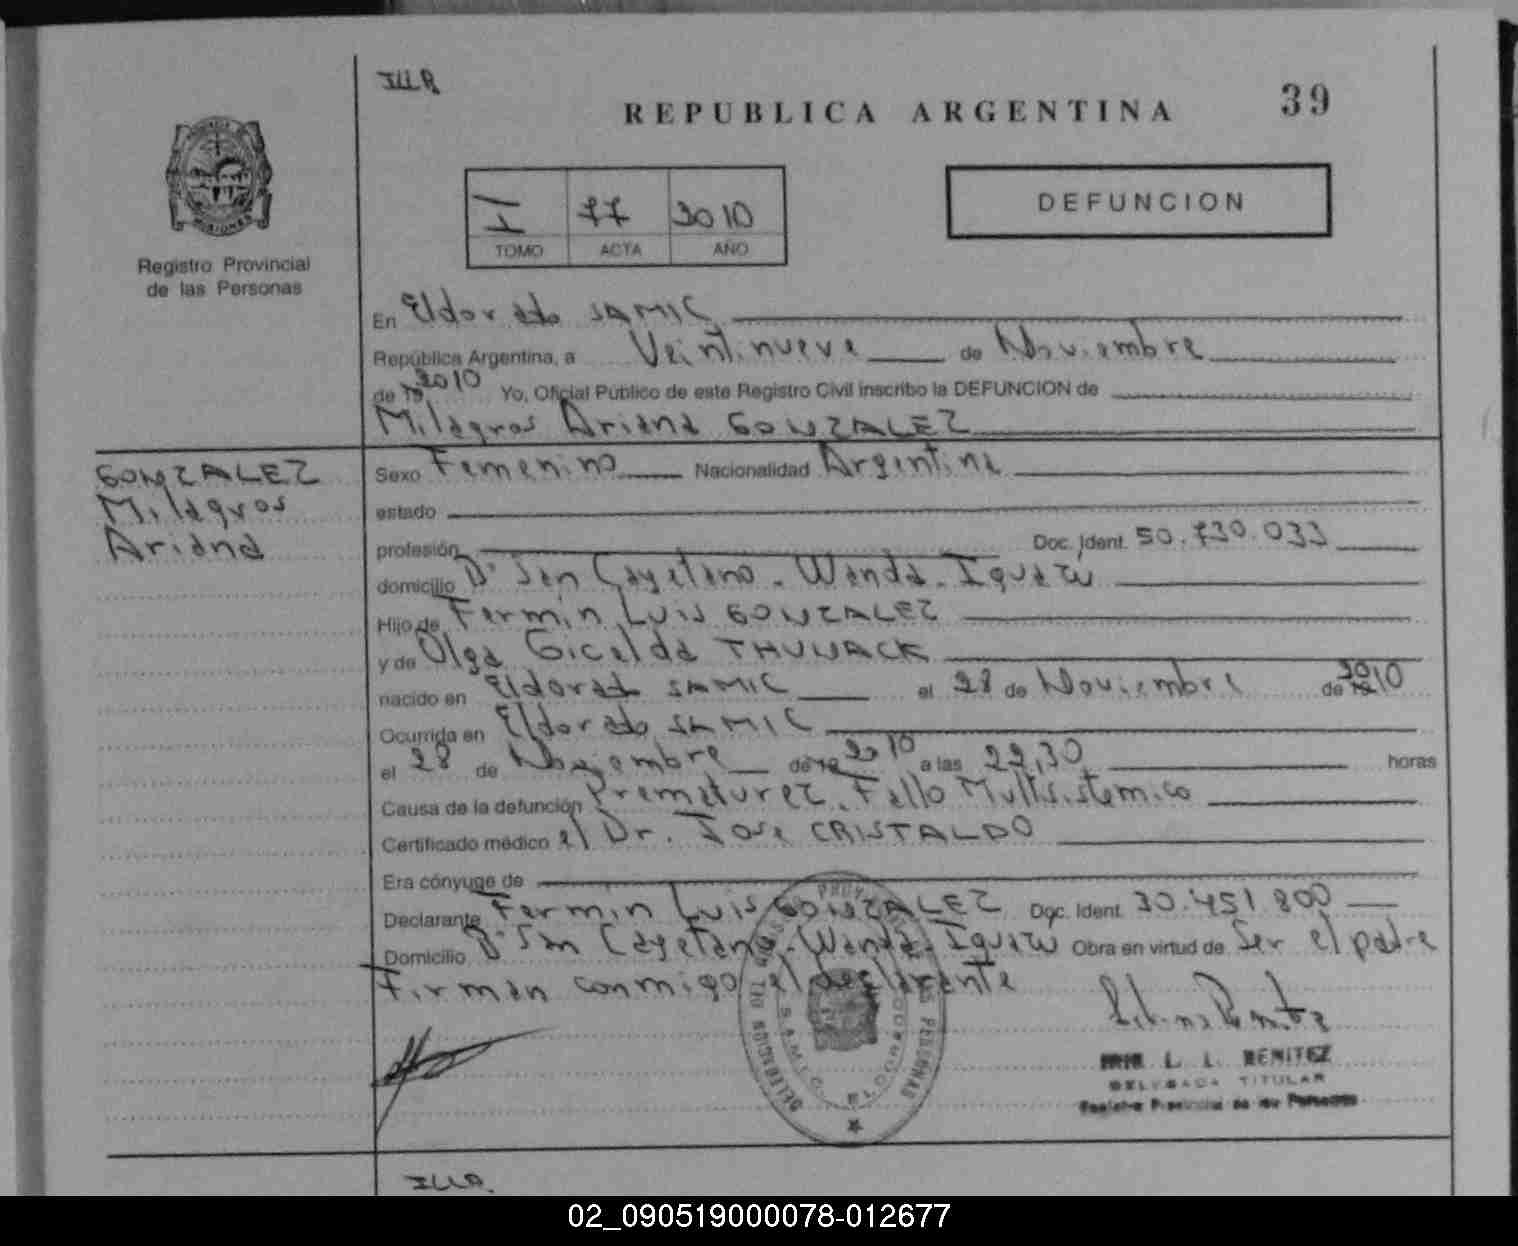 REPUBLICA ARGENTINA
39
I 77 2010
TOMO ACTA AÑO
DEFUNCION
Registro Provincial
de las Personas
En Eldorado SAMIC
República Argentina, a Veintinueve de Noviembre
de 2010 Yo, Oficial Público de este Registro Civil inscribo la DEFUNCION de
Milagros Ariana GONZALEZ
GONZALEZ
Milagros
Ariana
Sexo Femenino Nacionalidad Argentina
estado
profesión Doc. Ident. 50.730.033
domicilio Bº San Cayetano - Wanda - Iguazú
Hijo de Fermin Luis GONZALEZ
y de Olga Gicelda
nacido en Eldorado SAMIC el 28 de Noviembre de 2010
Ocurrida en Eldorado SAMIC
el 28 de Noviembre de 2010 a las 22,30 horas
Causa de la defunción Prematurez. Fallo Multisistemico
Certificado médico el Dr. Jose CRISTALDO
Era cónyuge de
Declarante Fermin Luis GONZALEZ Doc. Ident. 30.451.800
Domicilio Bº San Cayetano - Wanda - Iguazú Obra en virtud de Ser el padre
Firman conmigo el declarante
L. L. BENITEZ
DELEGADA TITULAR
Registro Provincial de las Personas
02_090519000078-012677